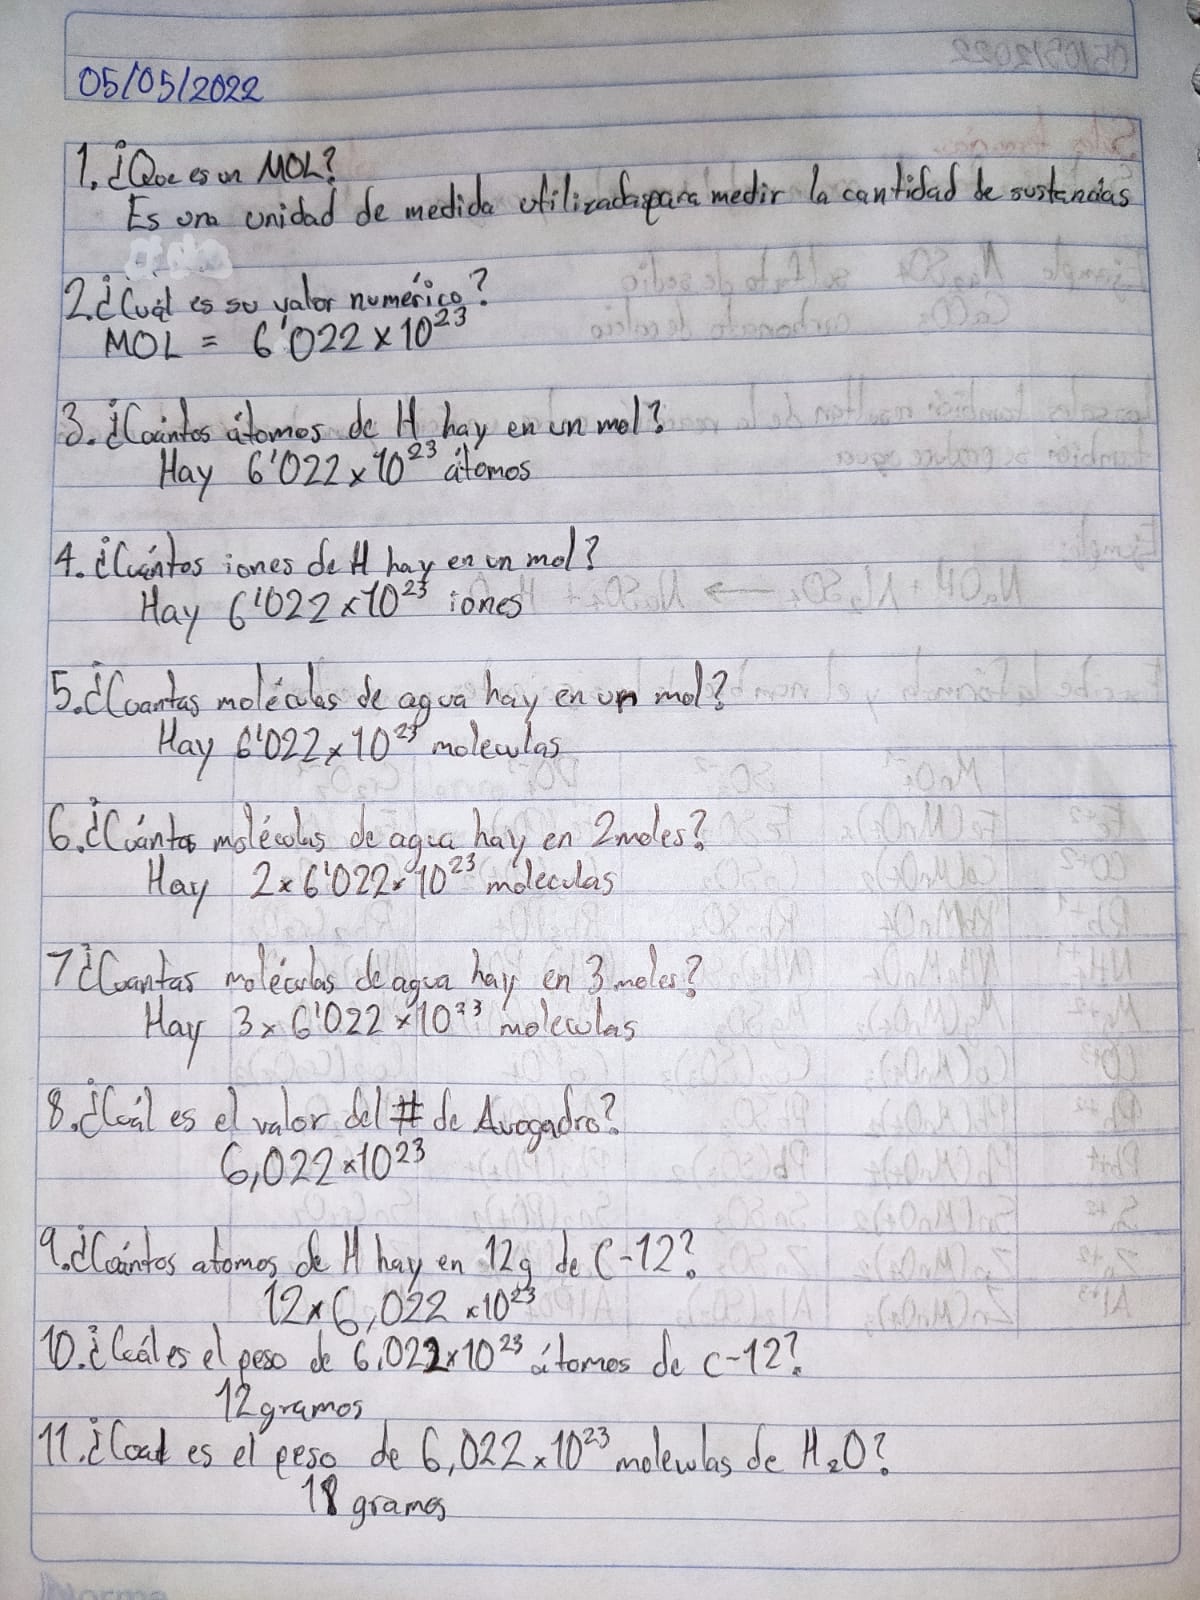 05/05/2022
1. ¿Que es un MOL?
Es una unidad de medida utilizada para medir la cantidad de sustancias
2. ¿Cuál es su valor numérico?
MOL = 6'022 x 10²³
3. ¿Cuántos átomos de H hay en un mol?
Hay 6'022 x 10²³ átomos
4. ¿Cuántos iones de H hay en un mol?
Hay 6'022 x 10²³ iones
5. ¿Cuantas moléculas de agua hay en un mol?
Hay 6'022 x 10²³ moleculas
6. ¿Cuántas moléculas de agua hay en 2 moles?
Hay 2 x 6'022 x 10²³ moleculas
7 ¿Cuantas moléculas de agua hay en 3 moles?
Hay 3 x 6'022 x 10²³ moleculas
8. ¿Cuál es el valor del # de Avogadro?
6,022 x 10²³
9. ¿Cuántos atomos de H hay en 12g de C-12?
12 x 6,022 x 10²³
10. ¿Cuál es el peso de 6,022 x 10²³ átomos de C-12?
12 gramos
11. ¿Cual es el peso de 6,022 x 10²³ moleculas de H₂O?
18 gramos
Norma